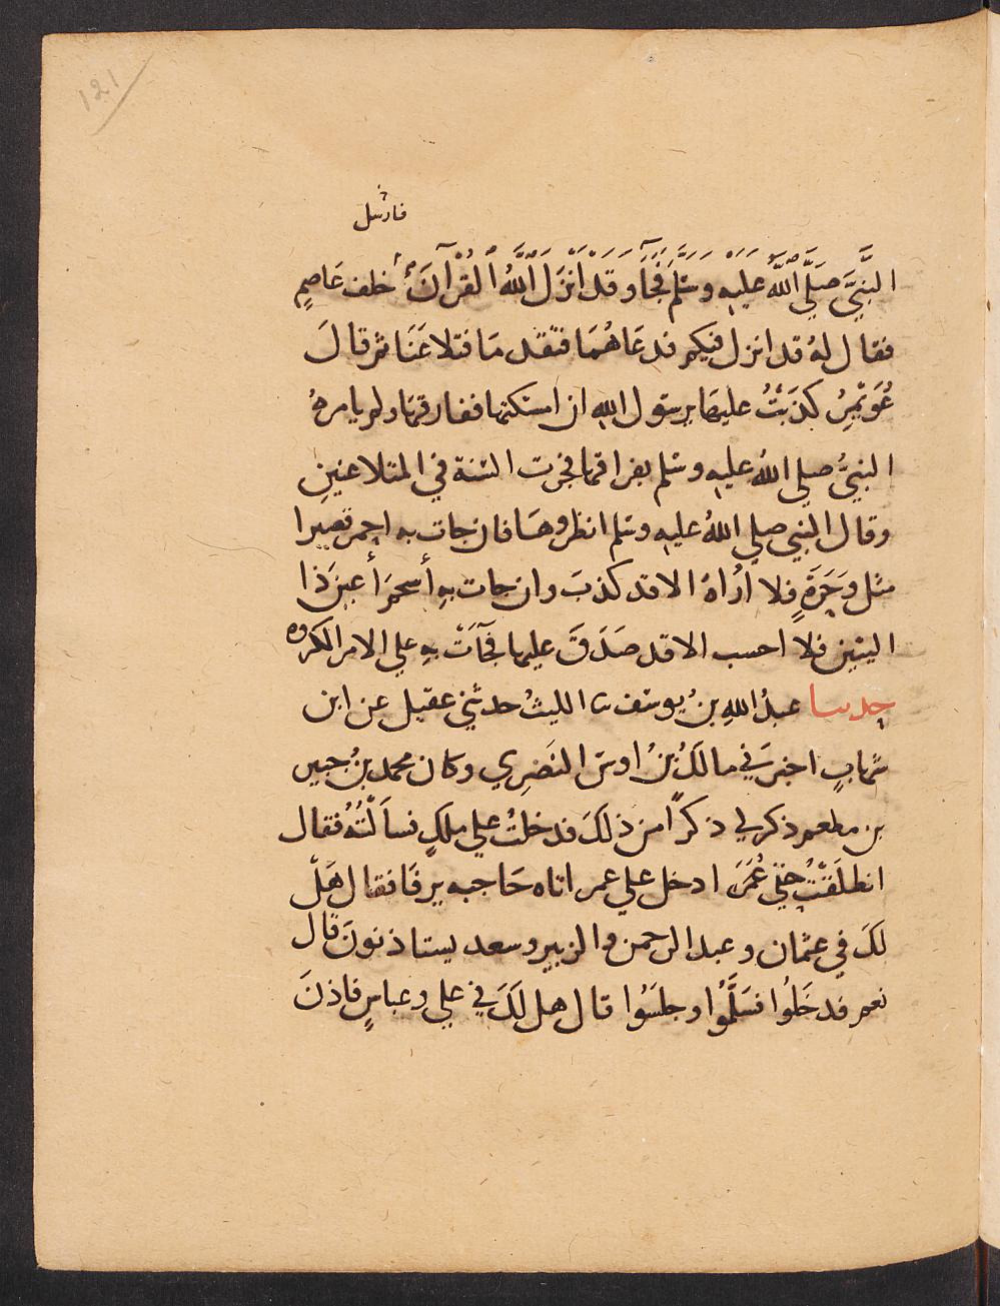 ١٢١
فارسل
النَّبِيَّ صَلَّي اللَّهُ عليهِ وسَلم فَجَآءَ وقَدْ اَنْزَلَ اللَّهُ الْقُرْآنَ خلف عَاصِمٍ
فقال لهُ قد انزل فيكم فدعَا هُمَا فتقدمَا فتلاعَنَا ثم قالَ
عُوَيْمِرُ كذَبْتُ عليهَا يرسَول اللهِ ان امسكتها ففارقهَا ولم يامرهُ
النبيُّ صلي اللهُ عليهِ وسَلم بفراقها فجرت السَّنة في المتلاعنينِ
وقال النبي صلي اللهُ عليهِ وسَلم انظروهَا فان جات بهِ احمر قصيرا
مثل وَحَرَةٍ فلا اُرَاهُ الا قد كذبَ وان جات بهِ أسحمَ أعين ذا
اليتين فلا احسب الا قد صَدَقَ عليها فجَآءَتْ بهِ علي الامر المكروه
حدثنا عبدُ اللهِ بنُ يوسَف ثنا الليثُ حدثني عقيل عن ابن
شهابٍ اخبرَني مالكُ بْنُ اوسَ النَصَرِي وكان محمد بنُ جبير
بن مطعم ذكر لي ذكرًا من ذلكَ فدخلتُ علي ملكٍ فسأَلْتُهُ فقال
انطلَقْتُ حتي عُمَرَ ادخل علي عمر اتاه حَاجبه يرفَا فقال هَلْ
لكَ في عثمان وعبد الرحمن والزبير وسعد يستاذنونَ قال
نعم فدخَلُوا فسَلَّمُوا وجلسَُوا قال هل لَكَ في علي وعباسٍ فاذنَ